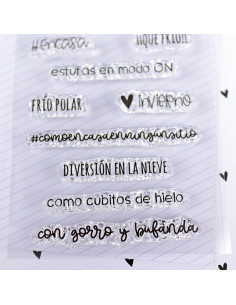 #encasa ¡¡QUÉ FRÍO!!
estufas en modo ON
FRÍO POLAR ♥ invierno
#comoencasaenningúnsitio
DIVERSIÓN EN LA NIEVE
como cubitos de hielo
con gorro y bufanda